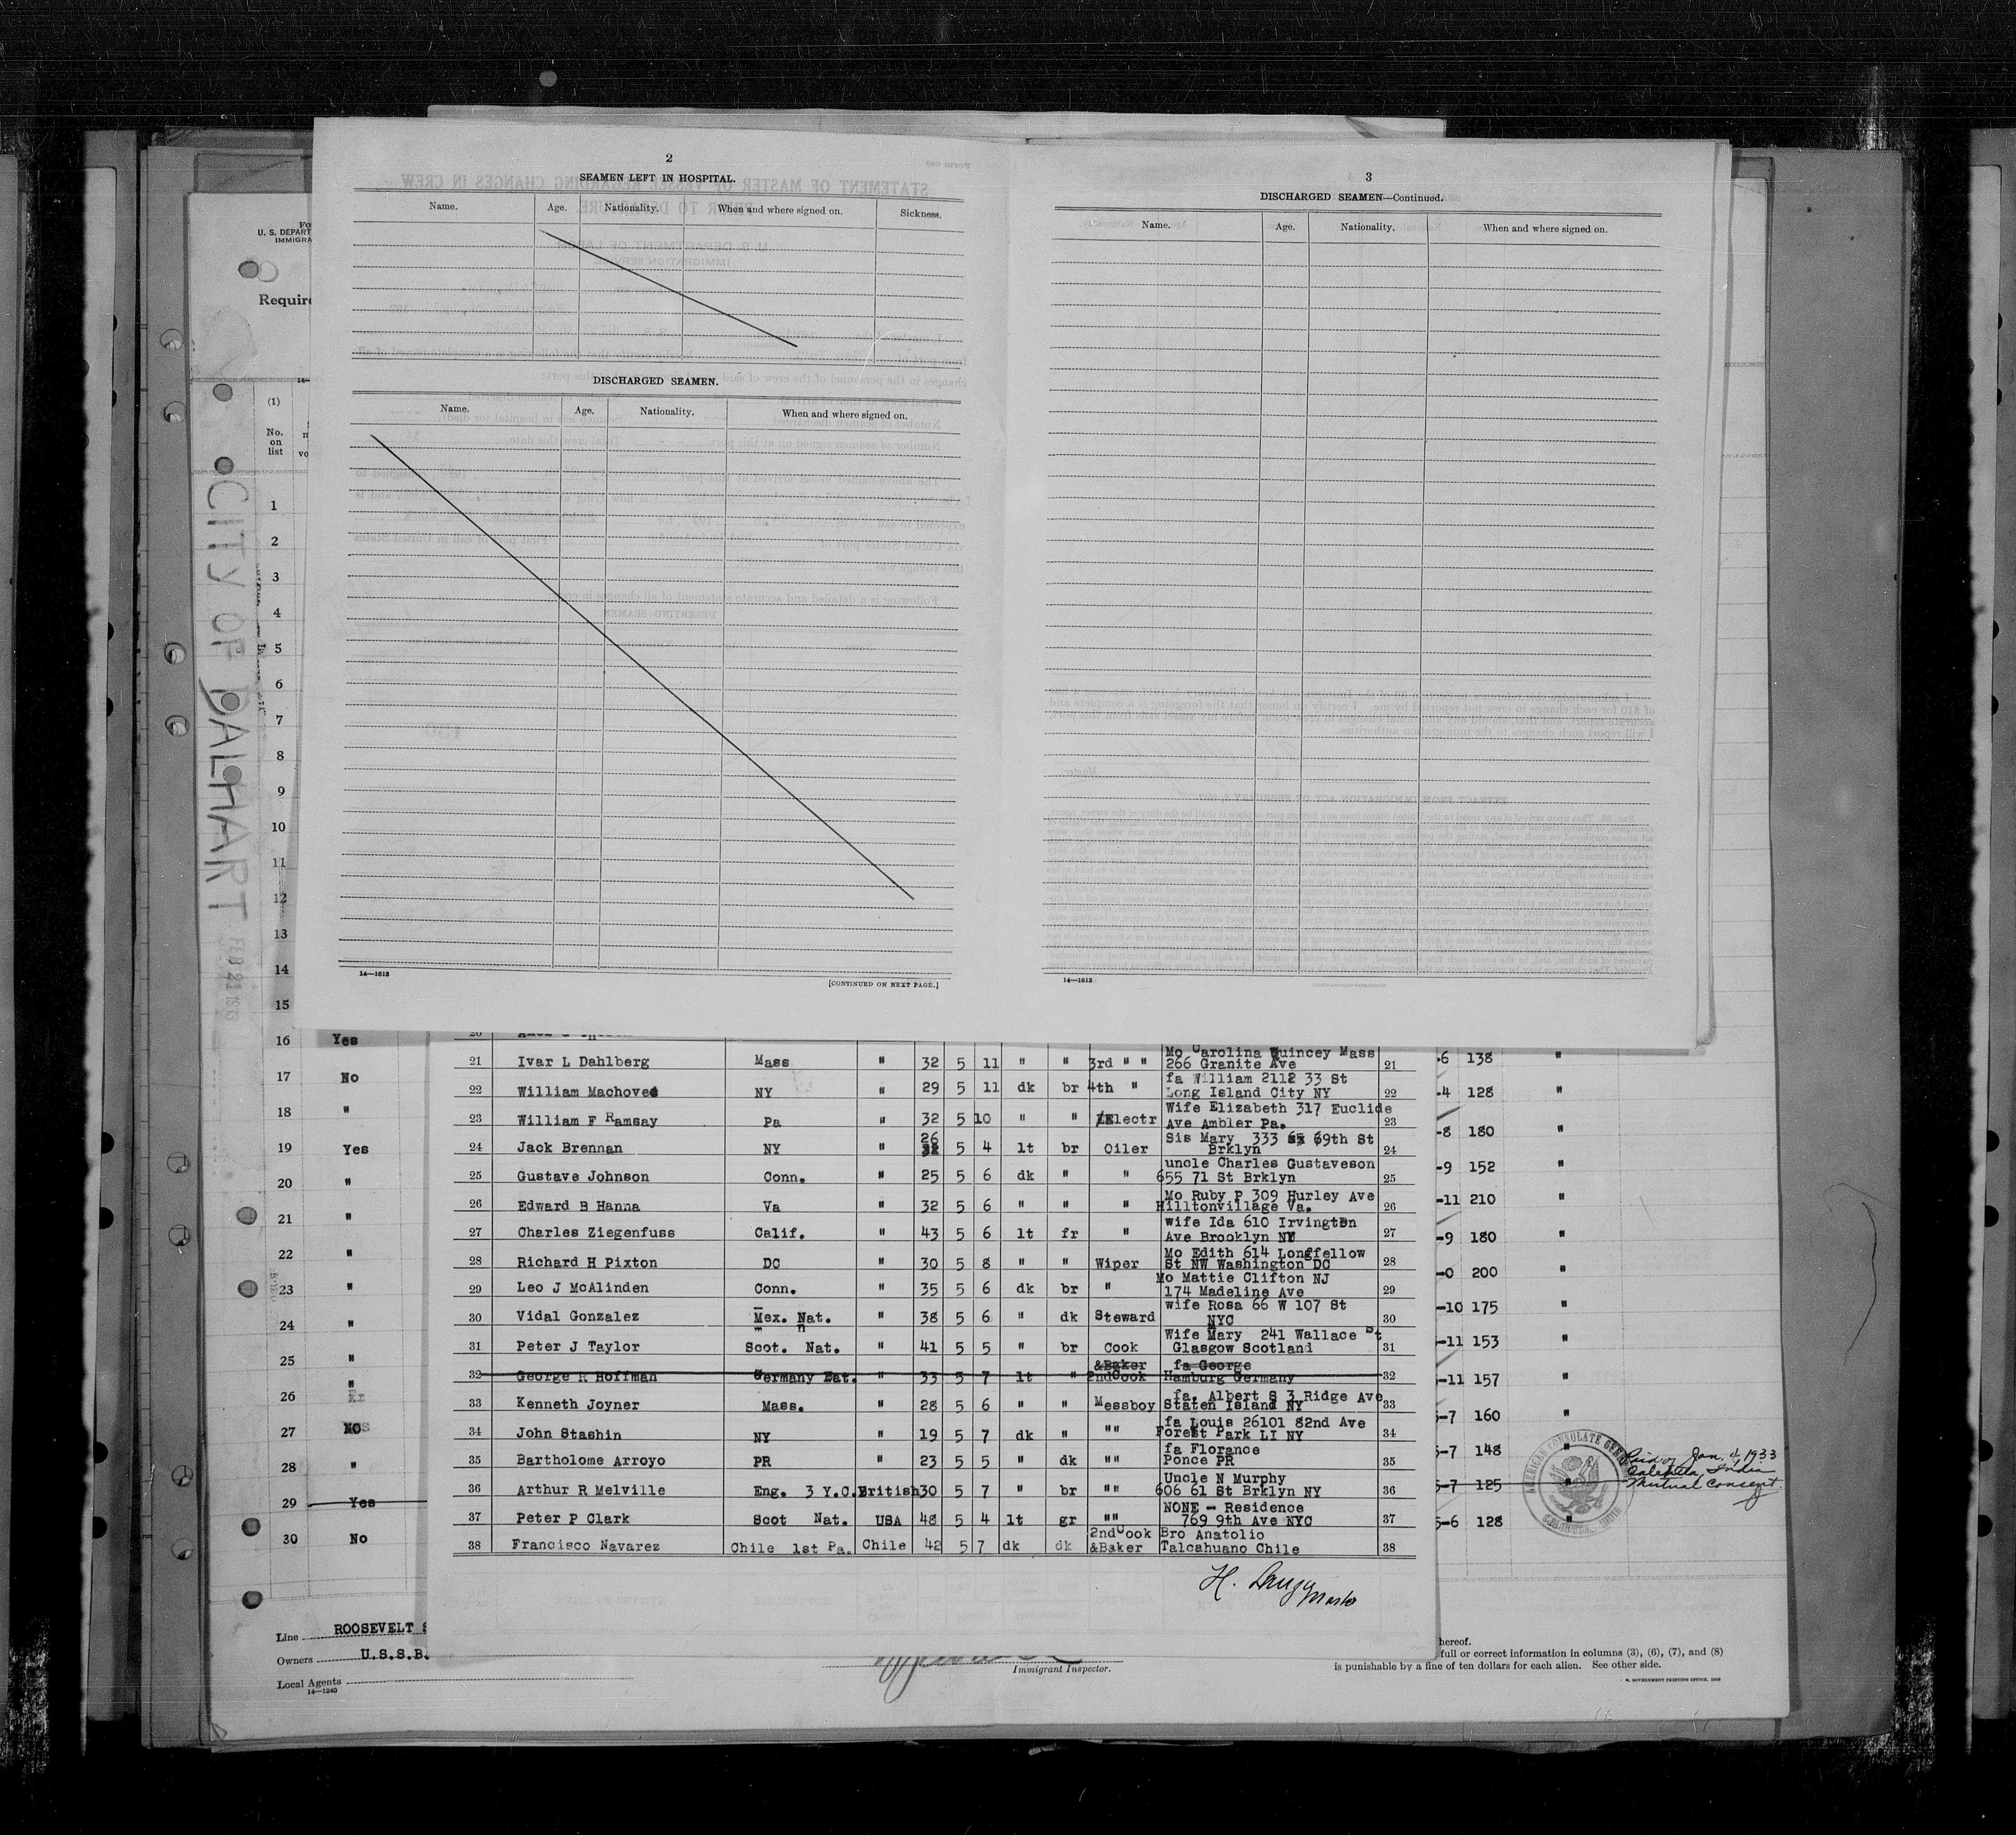 2
SEAMEN LEFT IN HOSPITAL.
Name. Age. Nationality. When and where signed on. Sickness.
DISCHARGED SEAMEN.
Name. Age. Nationality. When and where signed on.
14—1613
[CONTINUED ON NEXT PAGE.]
3
DISCHARGED SEAMEN—Continued.
Name. Age. Nationality. When and where signed on.
14—1613
Fo
U. S. DEPART
IMMIGRA
Require
(1)
No.
on
list
CITY OF DALHART
FEB 21 1933
1
2
3
4
5
6
7
8
9
10
11
12
13
14
15
16 Yes
17 No
18 "
19 Yes
20 "
21 "
22 "
23 "
24 "
25 "
26 "
27 NO
28 "
29 Yes
30 No
21 Ivar L Dahlberg Mass " 32 5 11 " " 3rd " " Mo Carolina Quincey Mass
266 Granite Ave 21
22 William Machovec NY " 29 5 11 dk br 4th " fa William 2112 33 St
Long Island City NY 22
23 William F Ramsay Pa " 32 5 10 " " Electr Wife Elizabeth 317 Euclide
Ave Ambler Pa. 23
24 Jack Brennan NY " 26 5 4 lt br Oiler Sis Mary 333 69th St
Brklyn 24
25 Gustave Johnson Conn. " 25 5 6 dk " " uncle Charles Gustaveson
655 71 St Brklyn 25
26 Edward B Hanna Va " 32 5 6 " " " Mo Ruby P 309 Hurley Ave
Hilltonvillage Va. 26
27 Charles Ziegenfuss Calif. " 43 5 6 lt fr " wife Ida 610 Irvington
Ave Brooklyn NY 27
28 Richard H Pixton DC " 30 5 8 " " Wiper Mo Edith 614 Longfellow
St NW Washington DC 28
29 Leo J McAlinden Conn. " 35 5 6 dk br " Mo Mattie Clifton NJ
174 Madeline Ave 29
30 Vidal Gonzalez Mex. Nat. " 38 5 6 " dk Steward wife Rosa 66 W 107 St
NYC 30
31 Peter J Taylor Scot. Nat. " 41 5 5 " br Cook Wife Mary 241 Wallace St
Glasgow Scotland 31
32 George R Hoffman Germany Nat. " 33 5 7 lt " &Baker 2ndCook fa George
Hamburg Germany 32
33 Kenneth Joyner Mass. " 28 5 6 " " Messboy fa. Albert S 3 Ridge Ave
Staten Island NY 33
34 John Stashin NY " 19 5 7 dk " "" fa Louis 26101 82nd Ave
Forest Park LI NY 34
35 Bartholome Arroyo PR " 23 5 5 " dk "" fa Florance
Ponce PR 35
36 Arthur R Melville Eng. 3 Y.C. British 30 5 7 " br "" Uncle N Murphy
606 61 St Brklyn NY 36
37 Peter P Clark Scot Nat. USA 48 5 4 lt gr "" NONE - Residence
769 9th Ave NYC 37
38 Francisco Navarez Chile 1st Pa. Chile 42 5 7 dk dk 2ndCook &Baker Bro Anatolio
Talcahuano Chile 38
-6 138 "
-4 128 "
-8 180 "
-9 152 "
-11 210 "
-9 180 "
-0 200 "
-10 175 "
-11 153 "
-11 157 "
5-7 160 "
5-7 148 "
5-7 125 "
5-6 128 "
AMERICAN CONSULATE GENERAL
CALCUTTA, INDIA
Jan. 11, 1933
Calcutta, India
Mutual Consent.
Master
Line ROOSEVELT S
Owners U.S.S.B.
Local Agents
14—1240
Immigrant Inspector.
hereof.
full or correct information in columns (3), (6), (7), and (8)
is punishable by a fine of ten dollars for each alien. See other side.